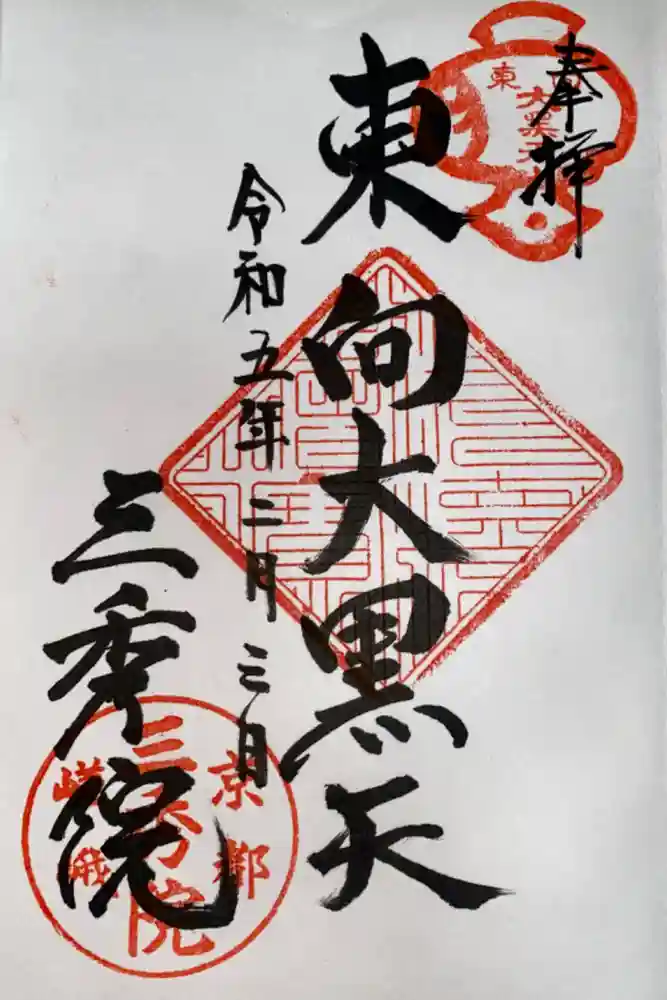 奉拝
東
大黒天
東向大黒天
令和五年二月三日
三秀院
京都
三秀院
嵯峨